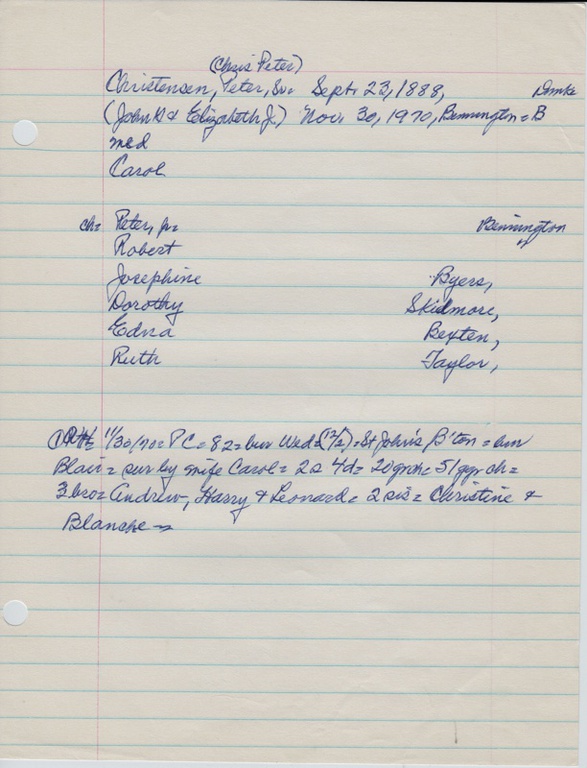 (Chris Peter)
Christensen, Peter, Sr. Sept. 23, 1888,
(John & Elizabeth J.) Nov. 30, 1970, Bennington = B
med
Carol
ch= Peter, Jr= Bennington
Robert "
Josephine Byers,
Dorothy Skidmore,
Edna Bexten,
Ruth Taylor,
11/30/70= P C= 82= bur Wed= (12/2)= St John's B'ton= bur
Blair= sur by wife Carol= 2 s 4d= 20 grch= 51 ggr ch=
3 bro= Andrew, Harry & Leonard= 2 sis= Christine &
Blanche